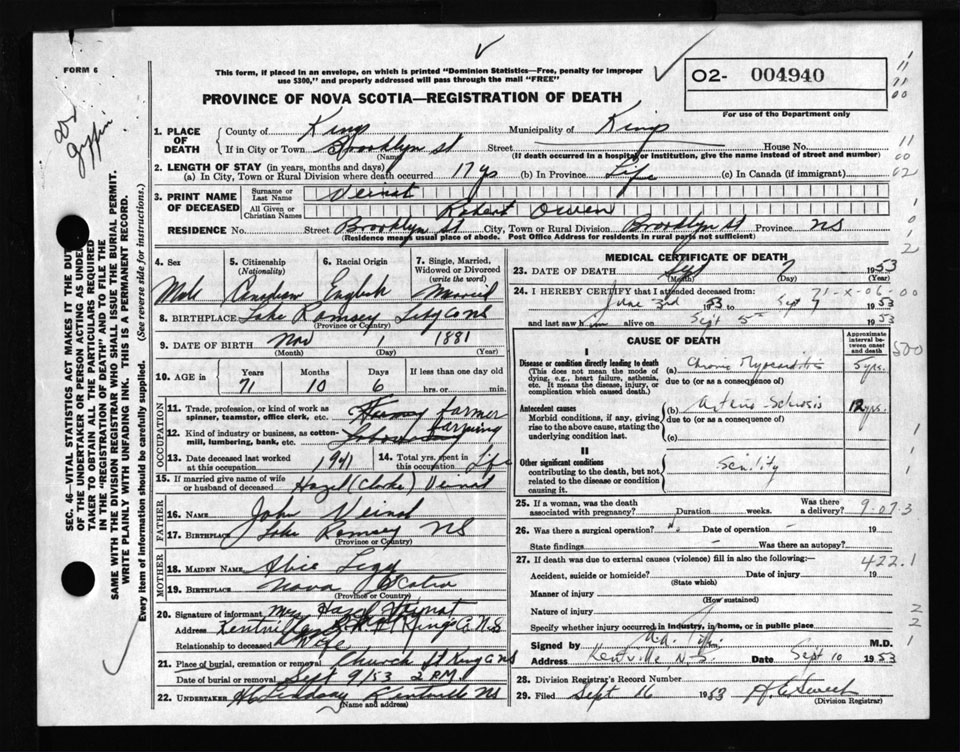 FORM 6
This form, if placed in an envelope, on which is printed "Dominion Statistics—Free, penalty for improper
use $300," and properly addressed will pass through the mail "FREE"
O2- 004940
PROVINCE OF NOVA SCOTIA—REGISTRATION OF DEATH
For use of the Department only
1. PLACE OF DEATH
County of Kings Municipality of Kings
If in City or Town Brooklyn St Street House No.
(Name) (If death occurred in a hospital or institution, give the name instead of street and number)
2. LENGTH OF STAY (in years, months and days)
(a) In City, Town or Rural Division where death occurred 17 ys (b) In Province Life (c) In Canada (if immigrant)
3. PRINT NAME OF DECEASED
Surname or Last Name Veinot
All Given or Christian Names Robert Owen
RESIDENCE No. Street Brooklyn St City, Town or Rural Division Brooklyn St Province NS
(Residence means usual place of abode. Post Office Address for residents in rural parts not sufficient)
4. Sex Male
5. Citizenship (Nationality) Canadian
6. Racial Origin English
7. Single, Married, Widowed or Divorced (write the word) Married
8. BIRTHPLACE Lake Ramsey NS
(Province or Country)
9. DATE OF BIRTH Nov 1 1881
(Month) (Day) (Year)
10. AGE in Years Months Days If less than one day old
71 10 6 hrs. or min.
OCCUPATION
11. Trade, profession, or kind of work as spinner, teamster, office clerk, etc. farmer
12. Kind of industry or business, as cotton-mill, lumbering, bank, etc. farming
13. Date deceased last worked at this occupation 1941
14. Total yrs. spent in this occupation Life
15. If married give name of wife or husband of deceased Hazel (Clarke) Veinot
FATHER
16. NAME John Veinot
17. BIRTHPLACE Lake Ramsey NS
(Province or Country)
MOTHER
18. MAIDEN NAME
19. BIRTHPLACE Nova Scotia
(Province or Country)
20. Signature of informant Mrs Hazel Veinot
Address Kentville Kings Co N.S
Relationship to deceased Wife
21. Place of burial, cremation or removal Church St Kings Co NS
Date of burial or removal Sept 9/53 2 P.M.
22. UNDERTAKER Kentville NS
(Name and address)
MEDICAL CERTIFICATE OF DEATH
23. DATE OF DEATH Sept 7 1953
(Month) (Day) (Year)
24. I HEREBY CERTIFY that I attended deceased from: 71-X-06-00
June 3rd 1953 to Sept 7 1953
and last saw him alive on Sept 5th 1953
CAUSE OF DEATH
Approximate interval between onset and death
I
Disease or condition directly leading to death
(This does not mean the mode of dying, e.g., heart failure, asthenia, etc. It means the disease, injury, or complication which caused death.)
(a) Chronic Myocarditis 5 yrs.
due to (or as a consequence of)
Antecedent causes
Morbid conditions, if any, giving rise to the above cause, stating the underlying condition last.
(b) Arterio Sclerosis yrs.
due to (or as a consequence of)
(c)
II
Other significant conditions
contributing to the death, but not related to the disease or condition causing it.
Senility
25. If a woman, was the death associated with pregnancy? Duration weeks. Was there a delivery? 9-07-3
26. Was there a surgical operation? No Date of operation - 19
State findings - Was there an autopsy? -
27. If death was due to external causes (violence) fill in also the following: 422.1
Accident, suicide or homicide? Date of injury 19
(State which)
Manner of injury
(How sustained)
Nature of injury
Specify whether injury occurred in industry, in home, or in public place
Signed by M.D.
Address Kentville, N.S. Date Sept 10 1953
28. Division Registrar's Record Number
29. Filed Sept 16 1953
(Division Registrar)
SEC. 46—VITAL STATISTICS ACT MAKES IT THE DUTY
OF THE UNDERTAKER OR PERSON ACTING AS UNDER-
TAKER TO OBTAIN ALL THE PARTICULARS REQUIRED
IN THE "REGISTRATION OF DEATH" AND TO FILE THE
SAME WITH THE DIVISION REGISTRAR WHO SHALL ISSUE THE BURIAL PERMIT.
WRITE PLAINLY WITH UNFADING INK. THIS IS A PERMANENT RECORD.
Every item of information should be carefully supplied. (See reverse side for instructions.)